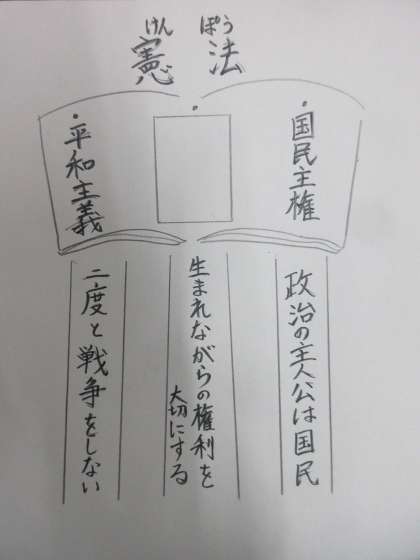 けんぽう
憲法
国民主権
平和主義
政治の主人公は国民
生まれながらの権利を
大切にする
二度と戦争をしない